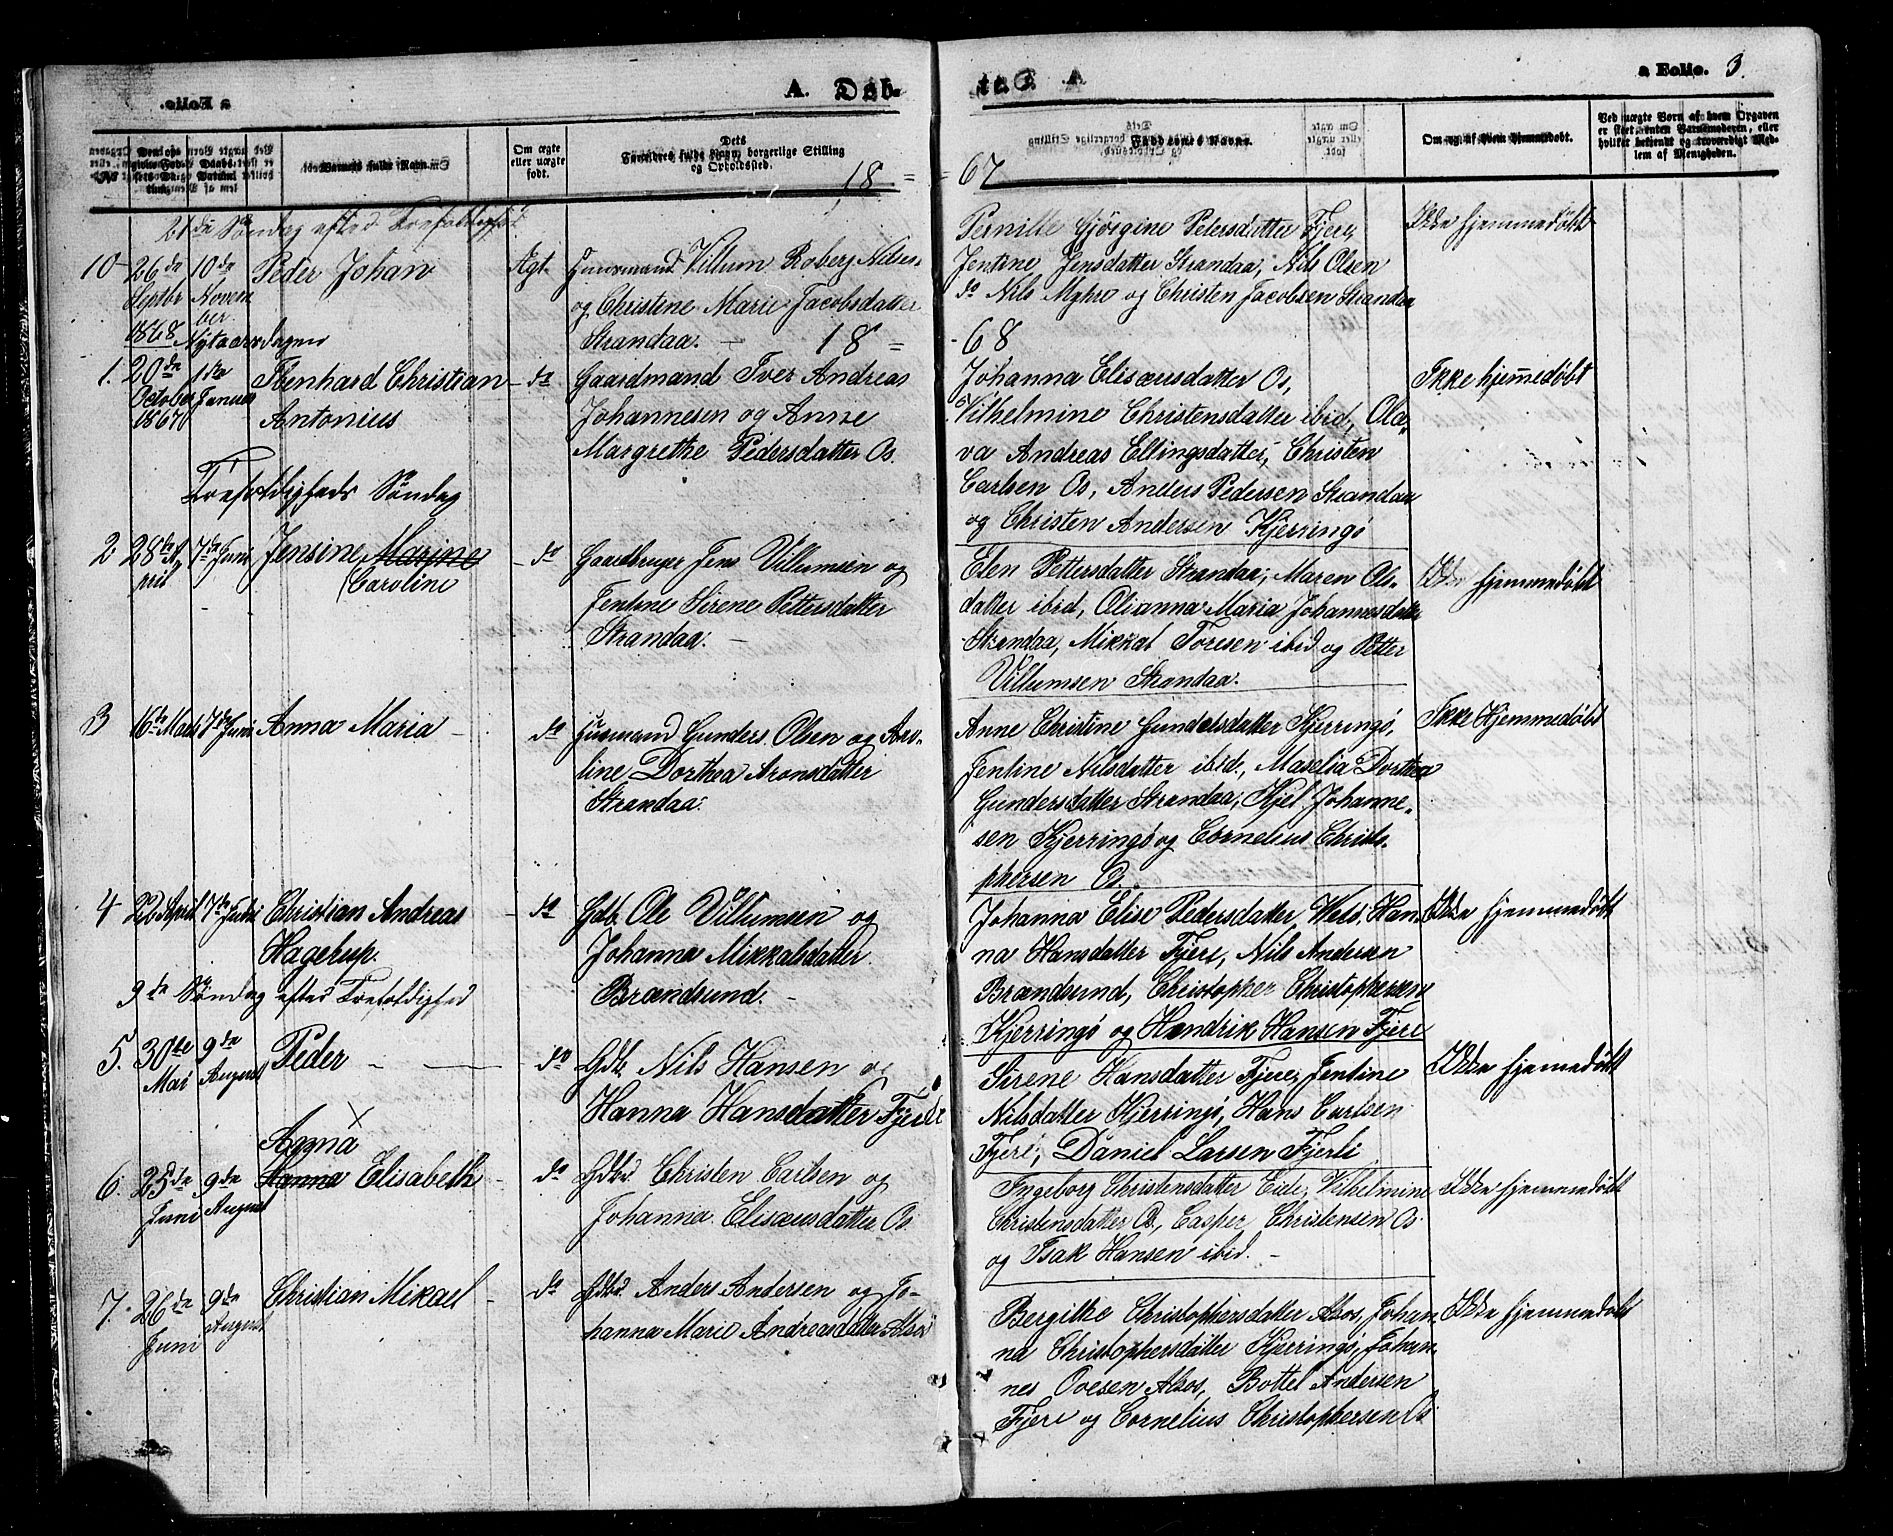 A. Døb-
a Folio. 3.
No.
Barnets fulde Navn.
Om ægte
eller uægte
født.
Dets
Forældres fulde Navn, borgerlige Stilling
og Opholdssted.
Faddernes Navne.
Om og af hvem hjemmedøbt.
Ved uægte Børn af hvem Opgaven
er skeet, enten Barnemoderen, eller
hvilket bekjendt og troværdigt Med-
lem af Menigheden.
18 = = 67
21de Søndag efter Trefoldighed
10 26de Septbr 10de November Peder Johan
Ægt. Huusmand Villum Roberg Nilsen
og Christine Marie Jacobsdatter
Strandaa. —
Pernille Gjørgine Petersdatter Fjere,
Jentine Jensdatter Strandaa, Nils Olsen
do Nils Myhre og Christen Jacobsen Strandaa
Ikke hjemmedøbt
18 = - 68
1868 Nytaarsdagen
1. 20de October 1867 1de Januar Ebenhard Christian
Antonius
do Gaardmand Iver Andreas
Johannesen og Anne
Margrethe Pedersdatter Os.
Johanna Elisæusdatter Os,
Vilhelmine Christensdatter ibid, Ola-
va Andreas Ellingsdatter, Christen
Carlsen Os, Anders Pedersen Strandaa
og Christen Andersen Kjerringø
Ikke hjemmedøbt
Trefoldigheds Søndag
2 28de April 7de Juni Jensine Marine
(Caroline
do Gaardbruger Jens Villumsen og
Jentine Sirene Pettersdatter
Strandaa. —
Elen Pettersdatter Strandaa, Maren Ols-
datter ibid, Olianna Maria Johannesdatter
Strandaa, Mikkal Toresen ibid og Petter
Villumsen Strandaa.
Ikke hjemmedøbt
3 16de Marts 7de Juni Anna Maria -
do Husmand Gunders Olsen og Aro-
line Dorthea Aronsdatter
Strandaa.
Anne Christine Gundelsdatter Kjerringø,
Jentine Nilsdatter ibid., Maselia Dorthea
Gundersdatter Strandaa, Kjel Johanne-
sen Kjerringø og Cornelius Christo-
phersen Os.
Ikke Hjemmedøbt
4 22 April 7de Juni Christian Andreas
Hagerup.
do Gdb. Ole Villumsen og
Johanna Mikkalsdatter
Brændsund. -
Johanna Elise Pedersdatter, Han-
na Hansdatter Fjere, Nils Andersen
Brændsund, Christopher Christophersen
Kjerringø og Hendrik Hansen Fjere
Ikke hjemmedøbt
9de Søndag efter Trefoldighed
5. 30te Mai 9de August Peder - —
do Gdb. Nils Hansen og
Hanna Hansdatter Fjere
Sirene Hansdatter Fjere, Jentine
Nilsdatter Kjerringø, Hans Carlsen
Fjere, Daniel Larsen Fjerli
Ikke hjemmedøbt
Agna
6. 25de Juni 9de August Hanna Elisabeth -
do Gdbr. Christen Carlsen og
Johanna Elisæusdatter Os.
Ingeborg Christensdatter Eide, Vilhelmine
Christensdatter Os, Casper Christensen Os
og Isak Hansen ibid. -
Ikke hjemmedøbt
7. 26de Juni 9de August Christian Mikael -
do Gdbr. Anders Andersen og Jo-
hanna Marie Andreasdatter Alsos
Bergitte Christophersdatter Alsos, Johan-
na Christophersdatter Kjerringø, Johan-
nes Ovesen Alsos, Bottel Andersen
Fjere og Cornelius Christophersen Os
Ikke hjemmedøbt